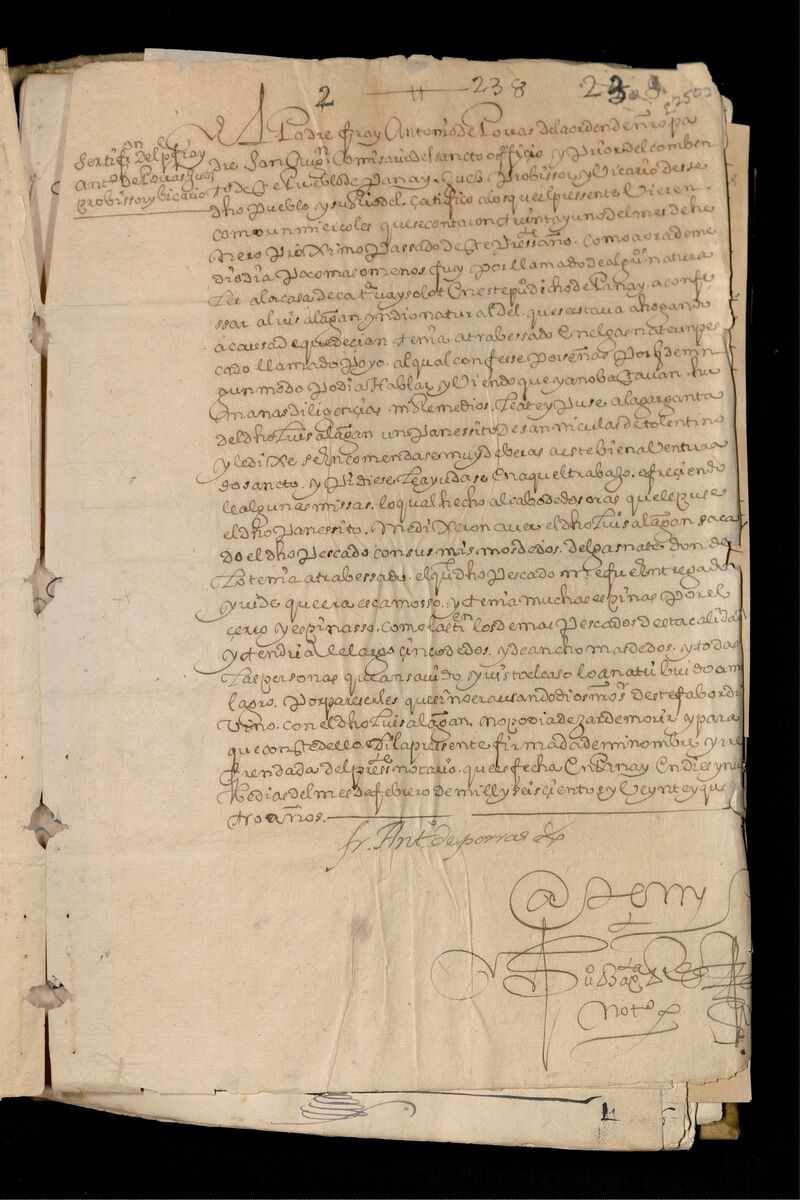 2 238 238
2503
Sertifi.on del pe fray
Anto de Porras Juez
probissor y bicario
El Padre fray Antonio de Porras dela orden de nro pa
dre San Augn Comisario del sancto officio y Prior del comben
to de este Pueblo de Panay. Juez Probissor y Vicario desse
dho Pueblo y su Çertifico a los que el pressente Vieren
como un miercoles que se contaron treinta y uno del mes de he
nero Pro Ximo Passado de este Presste año. como a ora de me
dio dia Poco mas o menos, fuy Por llamado de algus natura
les a la casa de en este puo dicho de Panay a confe
ssar a luis alagan yndio natural del que estava ahogando
a causa de que decian tenia atrabessado en el gasnate un pes
cado llamado Poyo. al qual confesse Por señas Porq de nin
gun modo Podia Hablar y Viendo que ya no bastavan hu
manas diligençias ni Remedios, Saque y Puse a la garganta
del dho Luis alagan un Panessito de san niculas de tolentino
y le diXe se encomendase muy de beras a este bienaVentura
do sancto. y Pidiese le ayudase en aquel trabajo. ofreçiendo
le algunas missas. lo qual hecho al cabo de dos oras que le puse
el dho Panessito. me diXeron aver el dho Luis alagan saca
do el dho Pescado con sus mismos dedos. del gasnate donde
lo tenia atrabessado. el qual dho Pescado me fue entregado
y vide que era escamosso. y tenia muchas espinas Por el
çerro y espinasso. como las tien los demas Pescados desta calidad
y tendria de largo çinco dedos. y de ancho mas dedos. y todas
las personas que an savido y visto el caso lo an atribuido a mi
lagro. Por pareserles que si no era usando dios
con el dho Luis alagan. no podia dejar de morir y para
que conste dello. Di la presente firmada de mi nombre y rre
frendada del presste notario. que es fecha en Panay en dies y nue
be dias del mes de febrero de mill y seisçientos y Veynte y qua
tro años.
fr. Anto de porras
Ante my
Noto